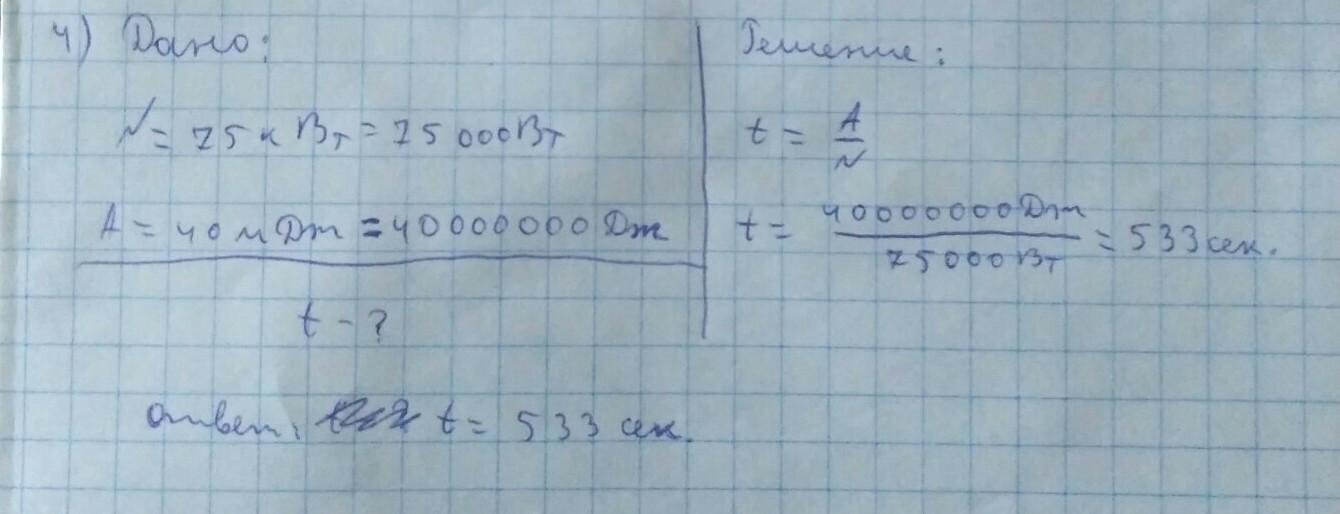 4) Дано:
N = 75 кВт = 75 000 Вт
A = 40 мДж = 40000000 Дж
t - ?
Решение:
t = A/N
t = 40000000 Дж / 75000 Вт = 533 сек.
ответ: t = 533 сек.